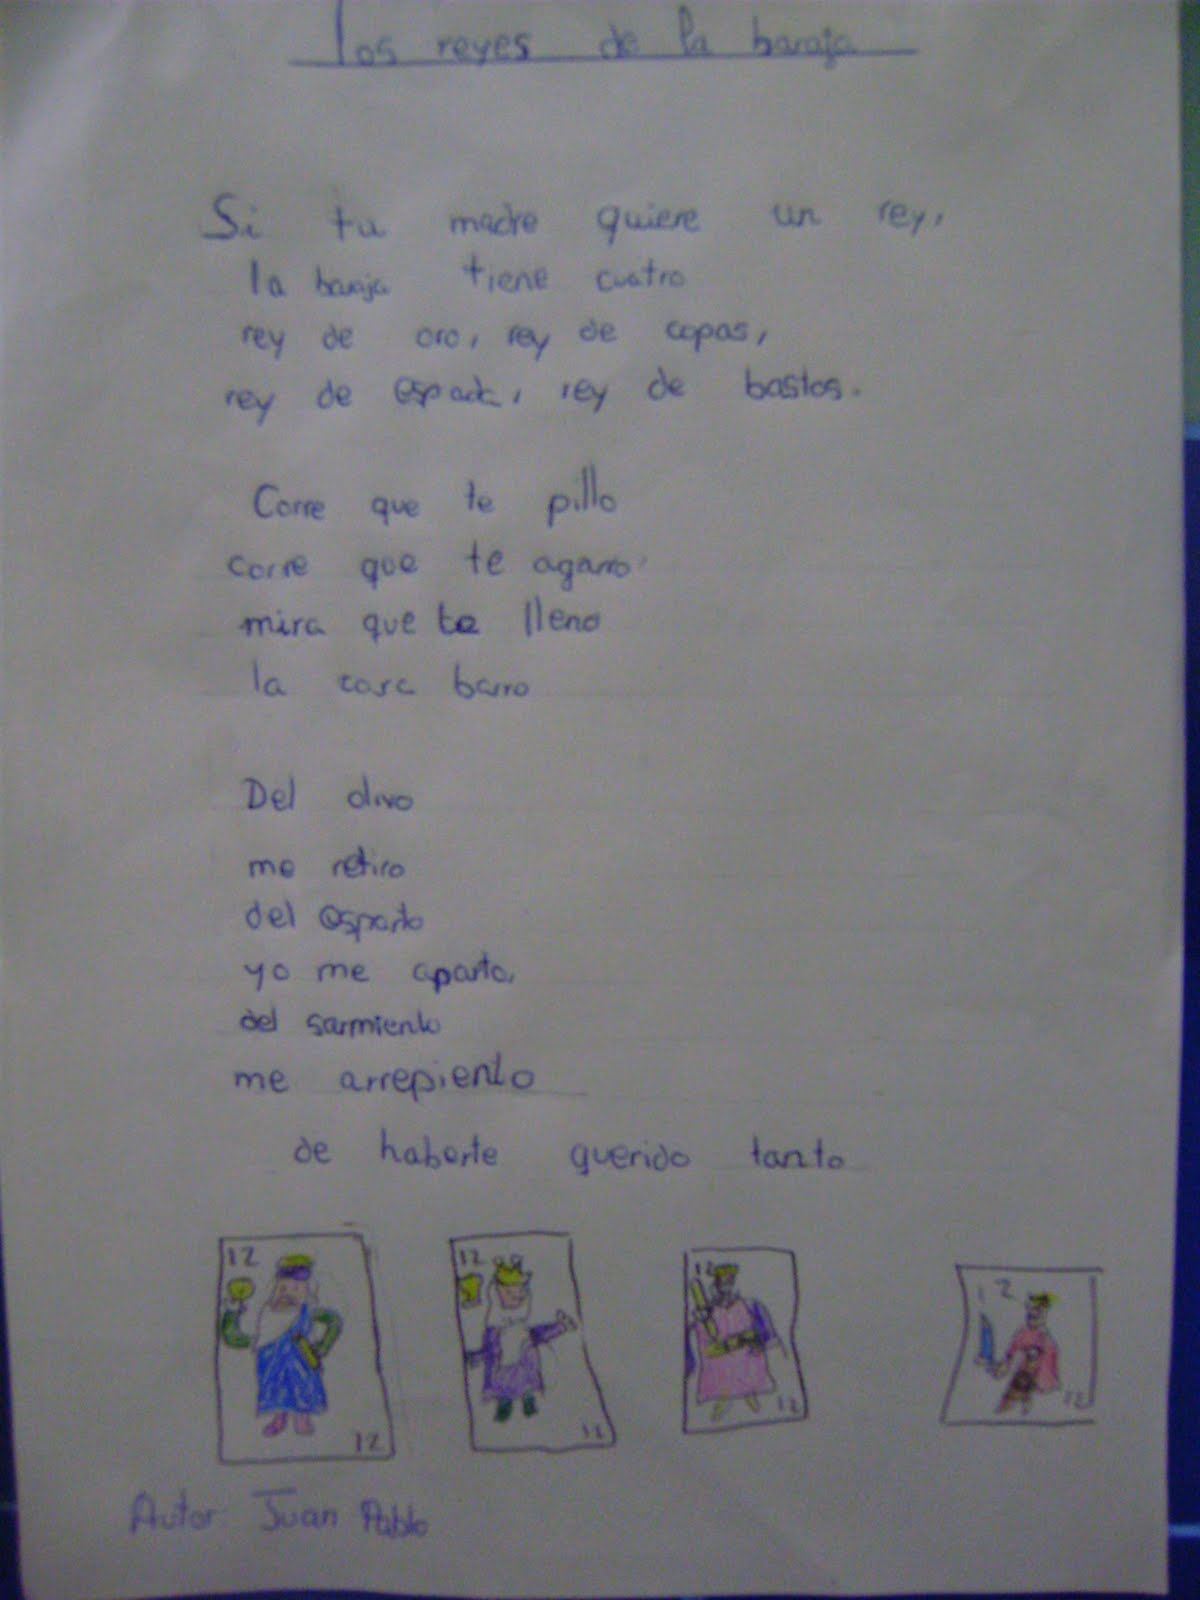 los reyes de la baraja
Si tu madre quiere un rey,
la baraja tiene cuatro
rey de oro, rey de copas,
rey de espada, rey de bastos.
Corre que te pillo
corre que te agarro
mira que te lleno
la cara barro
Del olivo
me retiro
del esparto
yo me aparto,
del sarmiento
me arrepiento
de haberte querido tanto
12 12 12 12
12 12 12 12
Autor: Juan Pablo